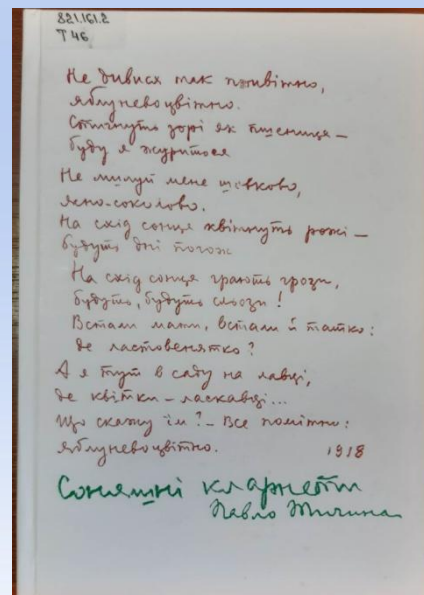 821.161.2
Т 46
Не дивися так привітно,
яблуневоцвітно.
Стигнуть зорі як пшениця –
буду я журитися
Не милуй мене шовково,
ясно-соколово.
На схід сонця квітнуть рожі –
будуть дні погожі
На схід сонця грають грози,
будуть, будуть сльози!
Встали мати, встали й татко:
де ластовенятко?
А я тут в саду на лавці,
де квітки – ласкавці...
Що скажу їм? – Все помітно:
яблуневоцвітно. 1918
Сонячні кларнети
Павло Тичина